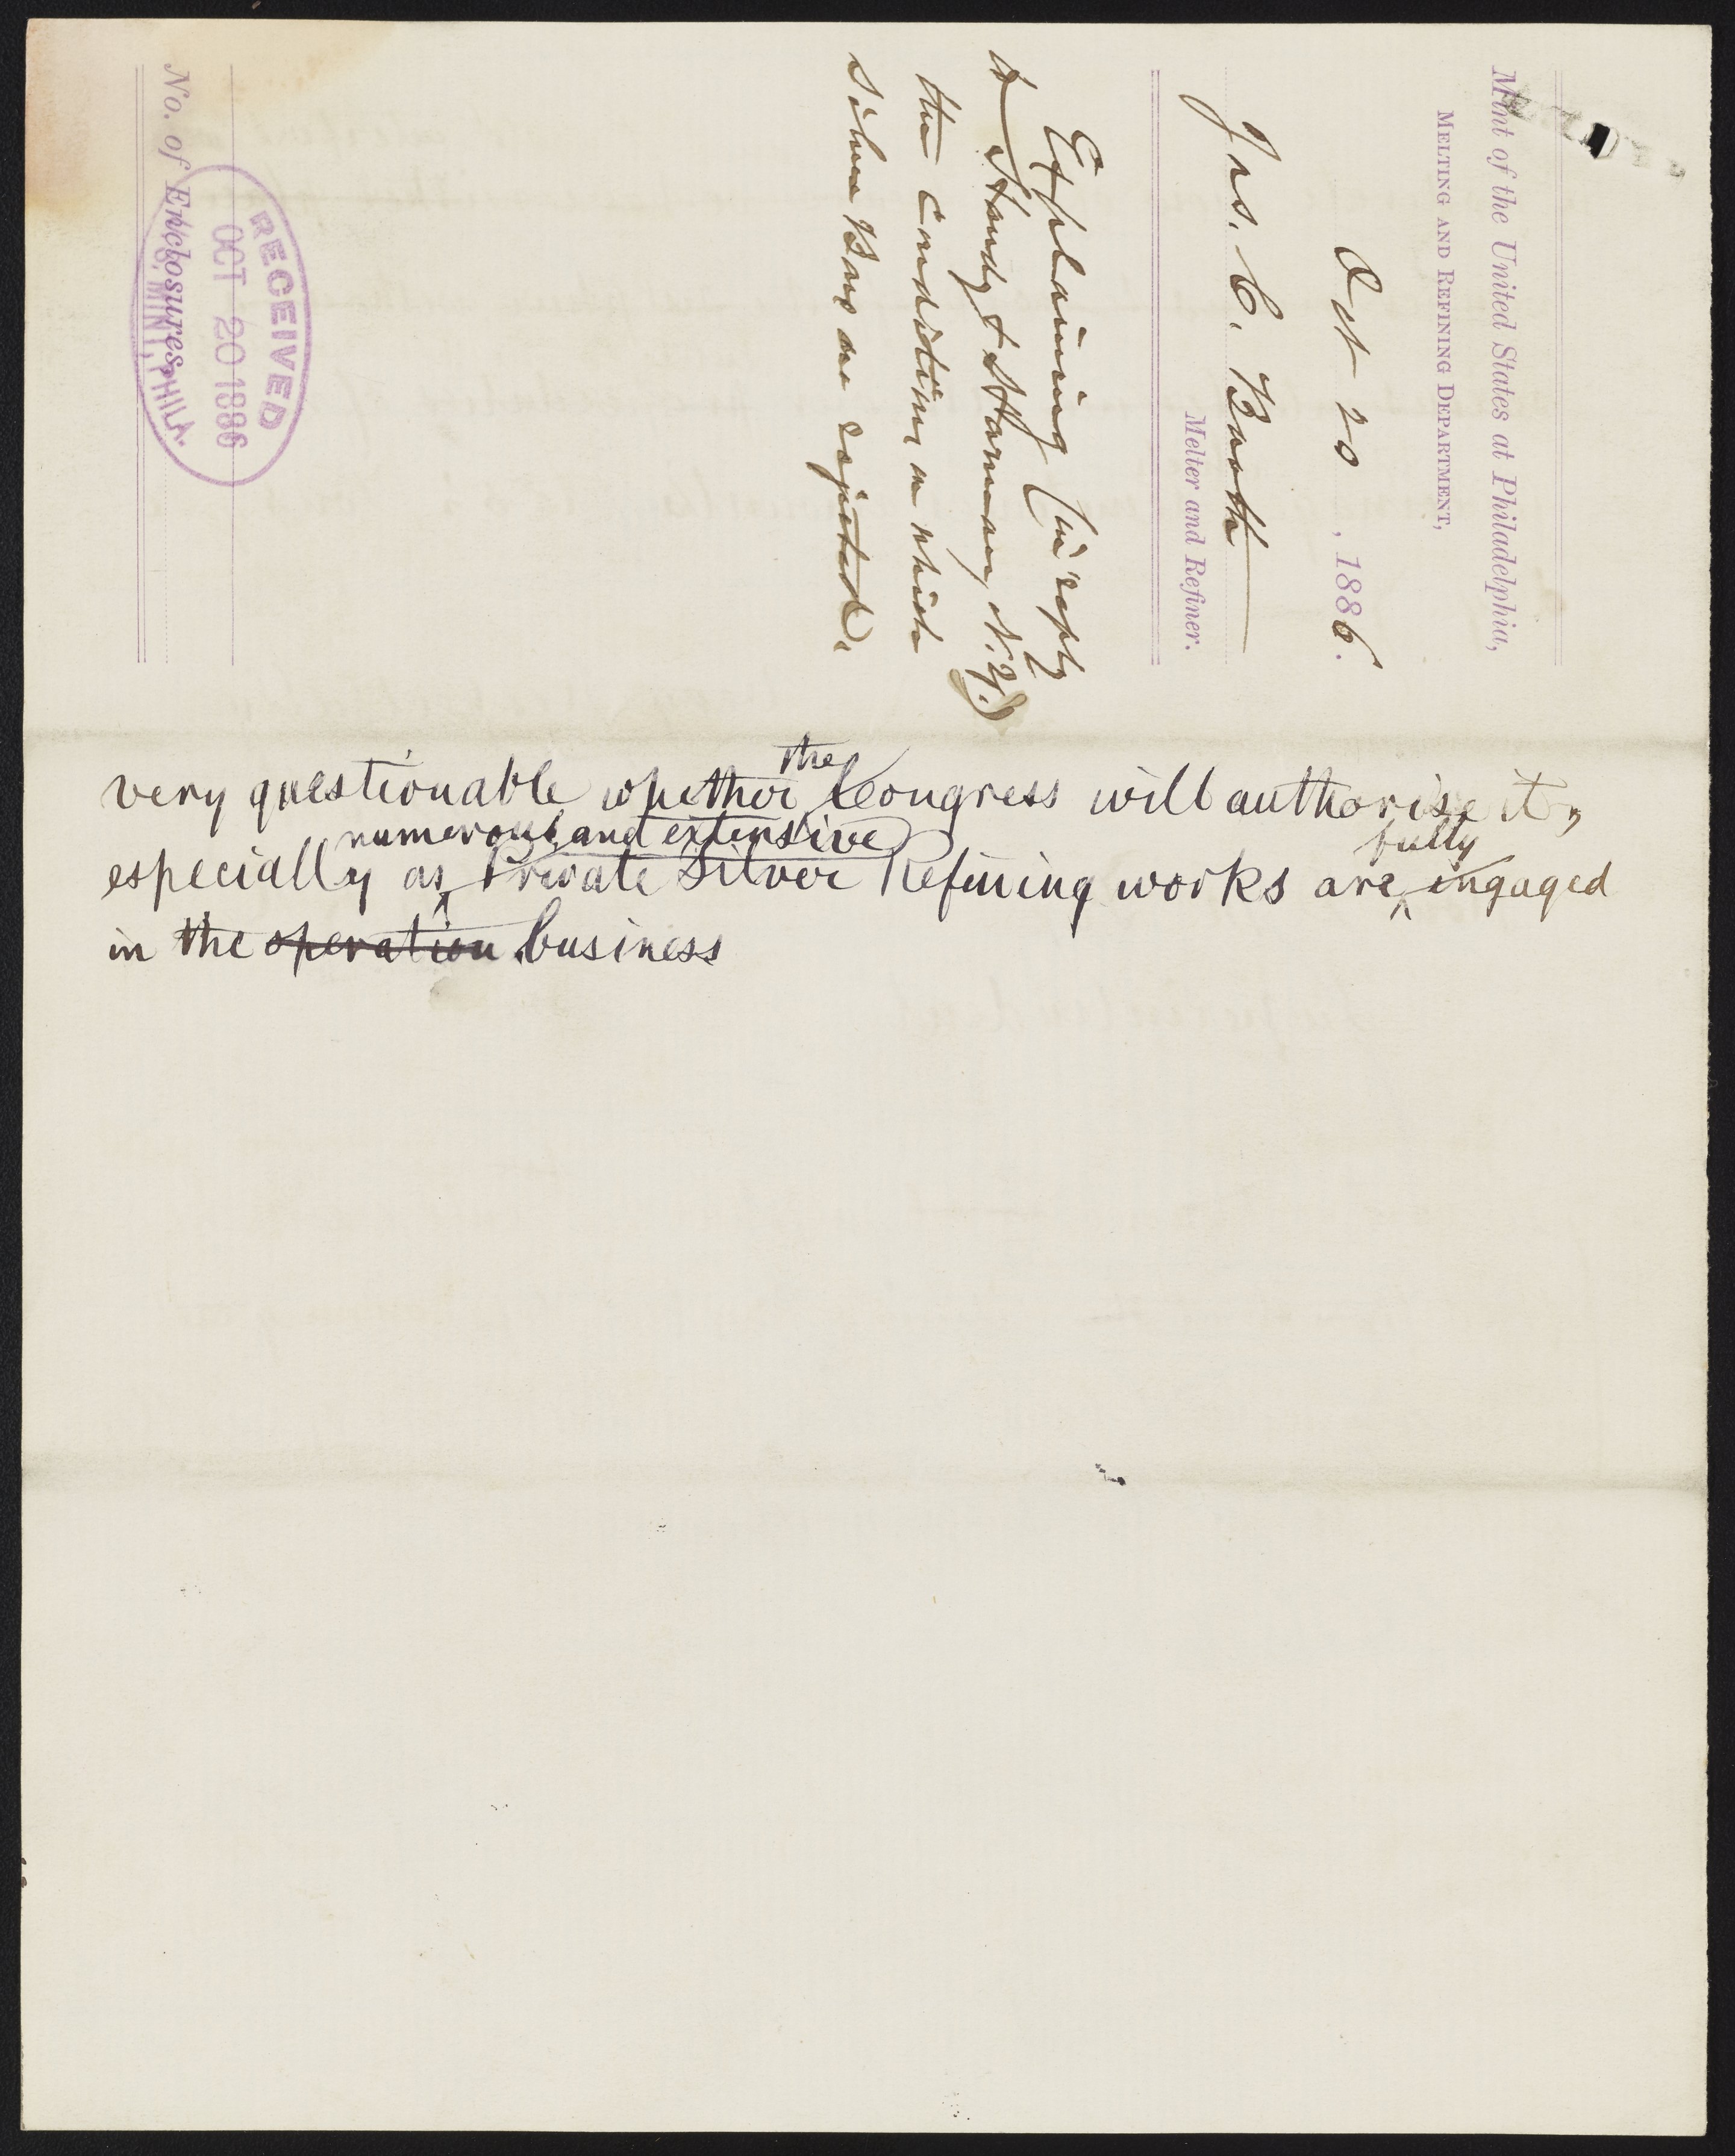 Mint of the United States at Philadelphia,
MELTING AND REFINING DEPARTMENT,
Oct 20, 1886.
Jas. C. Booth
Melter and Refiner.
Explaining (in reply
to Handy & Harman, N.Y.)
the condition, in which
Silver Bars are rejected.
No. of Enclosures,
RECEIVED
OCT 20 1886
U.S. MINT, PHILA.
the
very questionable whether Congress will authorise it,
numerous and extensive fully
especially as Private Silver Refining works are engaged
in the operation business